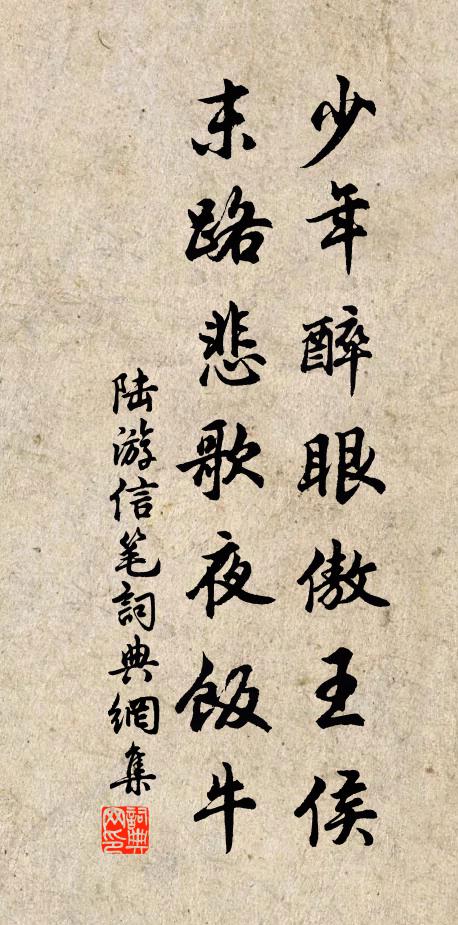 少年醉眼傲王侯
末路悲歌夜飯牛
陆游信笔詞典網集
詞典网印